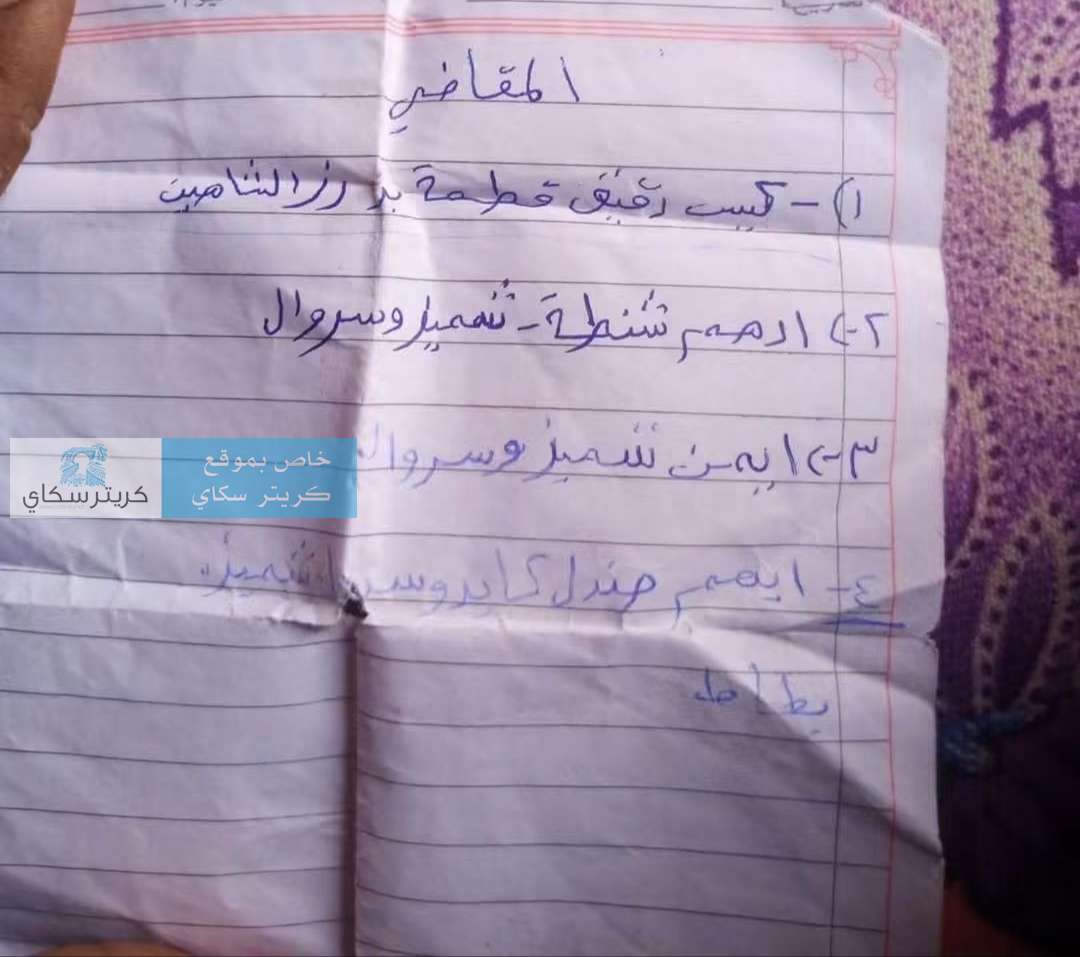 المقاضي
١) - كيس دقيق قطمة بر رز الشاهين
٢-) ادهم شنطة - شميز وسروال
٣-) ايمن شميز وسروال
٤- ايهم صندل كاب وسروال شميز
بطاط
خاص بموقع
كريتر سكاي
كريتر سكاي